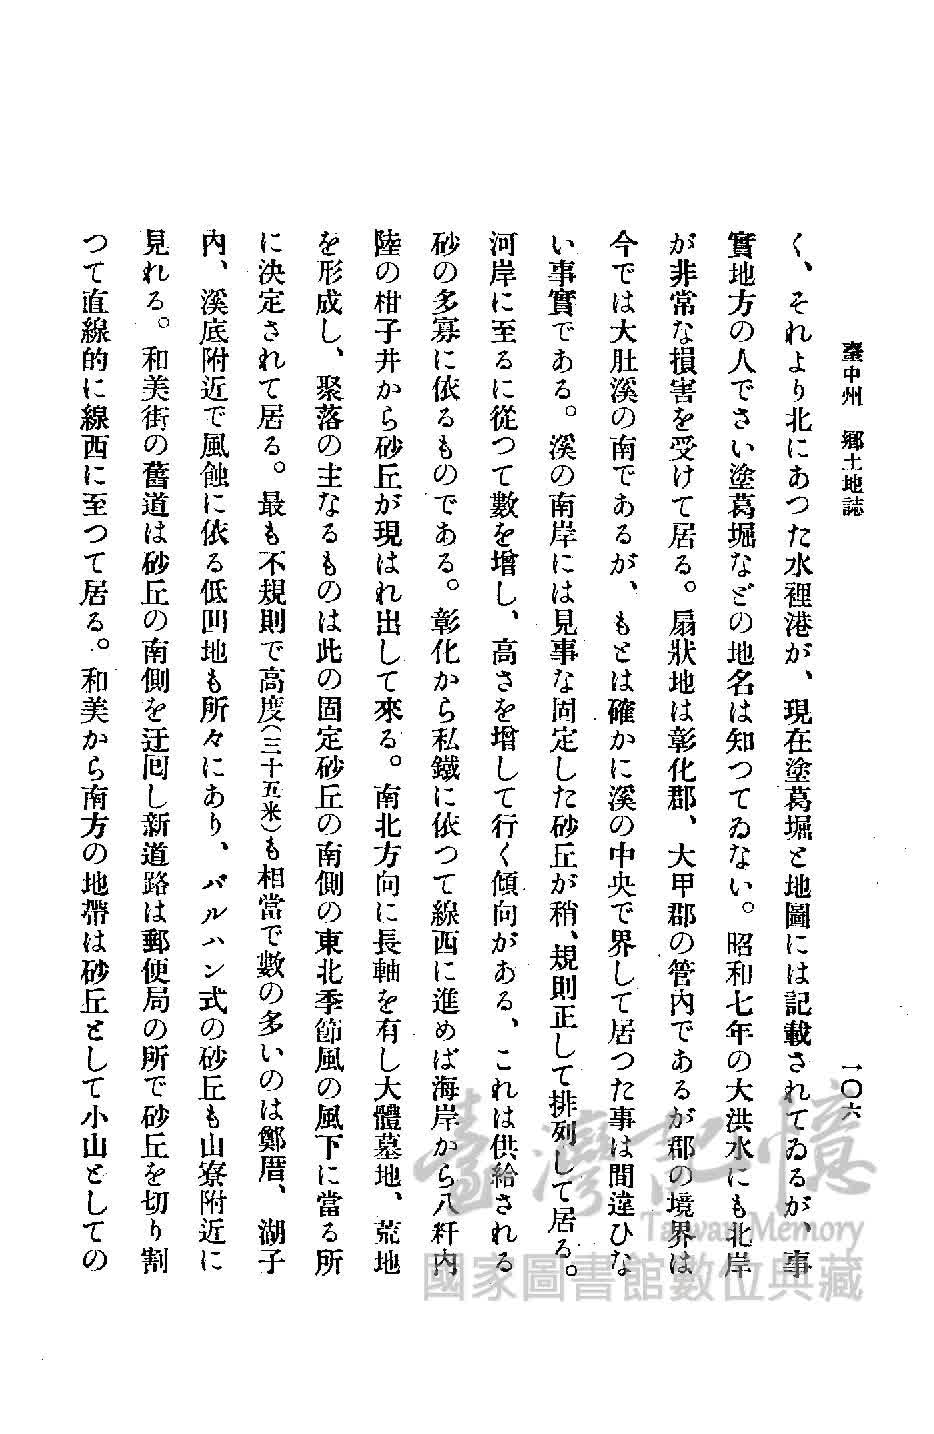 臺中州　鄕土地誌
一〇六
く、それより北にあつた水裡港が、現在塗葛堀と地圖には記載されてゐるが、事
實地方の人でさい塗葛堀などの地名は知つてゐない。昭和七年の大洪水にも北岸
が非常な損害を受けて居る。扇狀地は彰化郡、大甲郡の管內であるが郡の境界は
今では大肚溪の南であるが、もとは確かに溪の中央で界して居つた事は間違ひな
い事實である。溪の南岸には見事な固定した砂丘が稍、規則正して排列して居る。
河岸に至るに從つて數を增し、高さを增して行く傾向がある、これは供給される
砂の多寡に依るものである。彰化から私鐵に依つて線西に進めば海岸から八粁內
陸の柑子井から砂丘が現はれ出して來る。南北方向に長軸を有し大體墓地、荒地
を形成し、聚落の主なるものは此の固定砂丘の南側の東北季節風の風下に當る所
に決定されて居る。最も不規則で高度(三十五米)も相當で數の多いのは鄭厝、湖子
內、溪底附近で風蝕に依る低凹地も所々にあり、バルハン式の砂丘も山寮附近に
見れる。和美街の舊道は砂丘の南側を迂囘し新道路は郵便局の所で砂丘を切り割
つて直線的に線西に至つて居る。和美から南方の地帶は砂丘として小山としての
臺灣記憶
Taiwan Memory
國家圖書館數位典藏